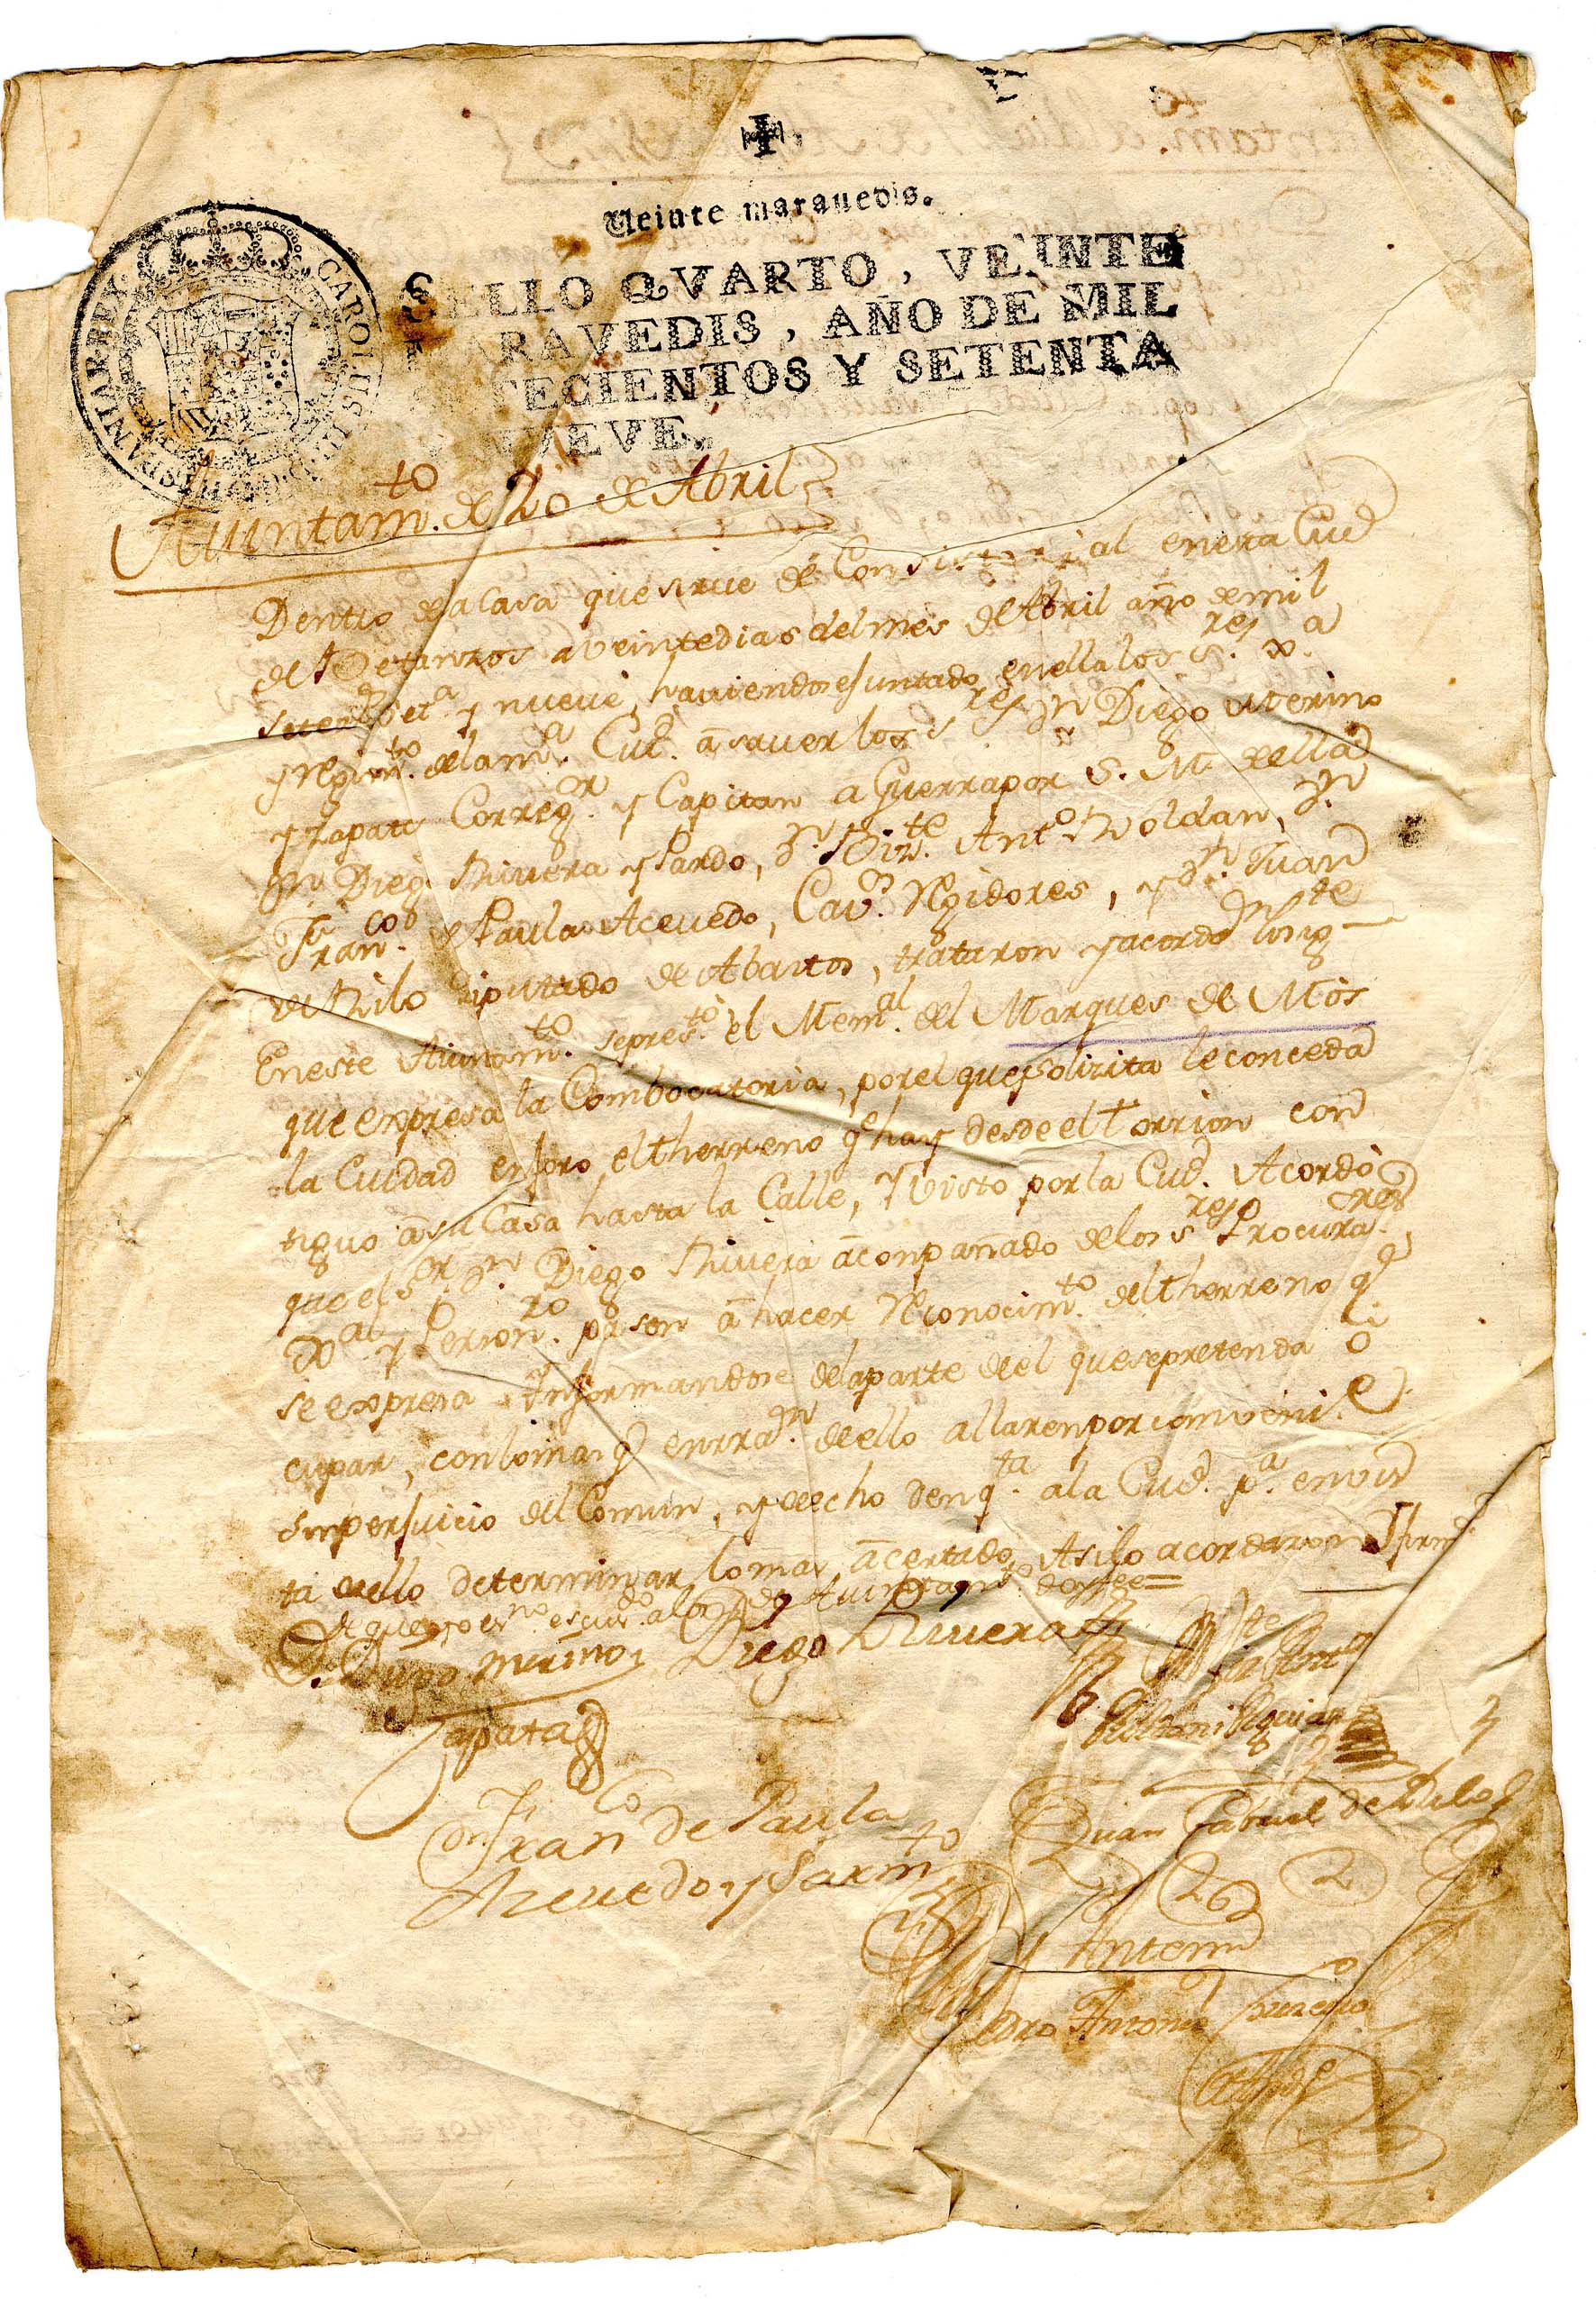 Veinte maravedis.
SELLO QVARTO, VEINTE
MARAVEDIS, AÑO DE MIL
SETECIENTOS Y SETENTA
NVEVE.
CAROLUS III D G HISPANIAR REX
Aiuntam.to de 20 de Abril
Dentro de la Casa que sirve de Consistorial en esta Ciud
de Betanzos a veinte dias del mes de Abril año de mil
setez.s set.a y nueve, haviendose juntado en ella los S.res X.a
y regim.to de la m.a Ciud. â saver los S.res Dn Diego Merino
y Zapata Correg.or y Capitan a Guerra por S. M. de ella
Dn Dieg. Rivera y Pardo, Dn. Viz.te Ant.o Roldan, Dn.
Fran.co de Paula Acevedo, Cav.os Rexidores, y Dn. Juan
de Rilo Diputado de Abastos, trataron y acordo lo sig.te
En este Aiuntam.to se pres.to el Mem.al del Marques de Mos
que expresa la Combocatoria, por el que solizita le conceda
la Ciudad en foro el therreno q.e hay desde el Torrion con
tiguo â su Casa hasta la Calle, Y visto por la Ciud. Acordô
que el S.or Dn. Diego Rivera aconpañado de los S.res Procura.res
X.al y Person.ro pasen â hacer Reconocim.to del therreno q.e
se expresa Informandose de la parte de el que se pretenda ô
cupar, con lo mas q.e en rra.on de ello allaren por conveni.e
sin perjuicio del Comun, y decho den q.ta a la Ciud. p.a en vis
ta de ello determinar lo mas âcertado Asi lo acordaron Y firm.
De que yo es.no escus.o al of.o de Aiuntam.to doy fee=
Dn. Diego Merino y Diego Rivera
Zapata
Viz.te Ant.o
Roldan
Dn Fran.co de Paula
Azevedo y Sarm.to
Juan Gabriel de Rilo
Antemi
Pedro Antonio